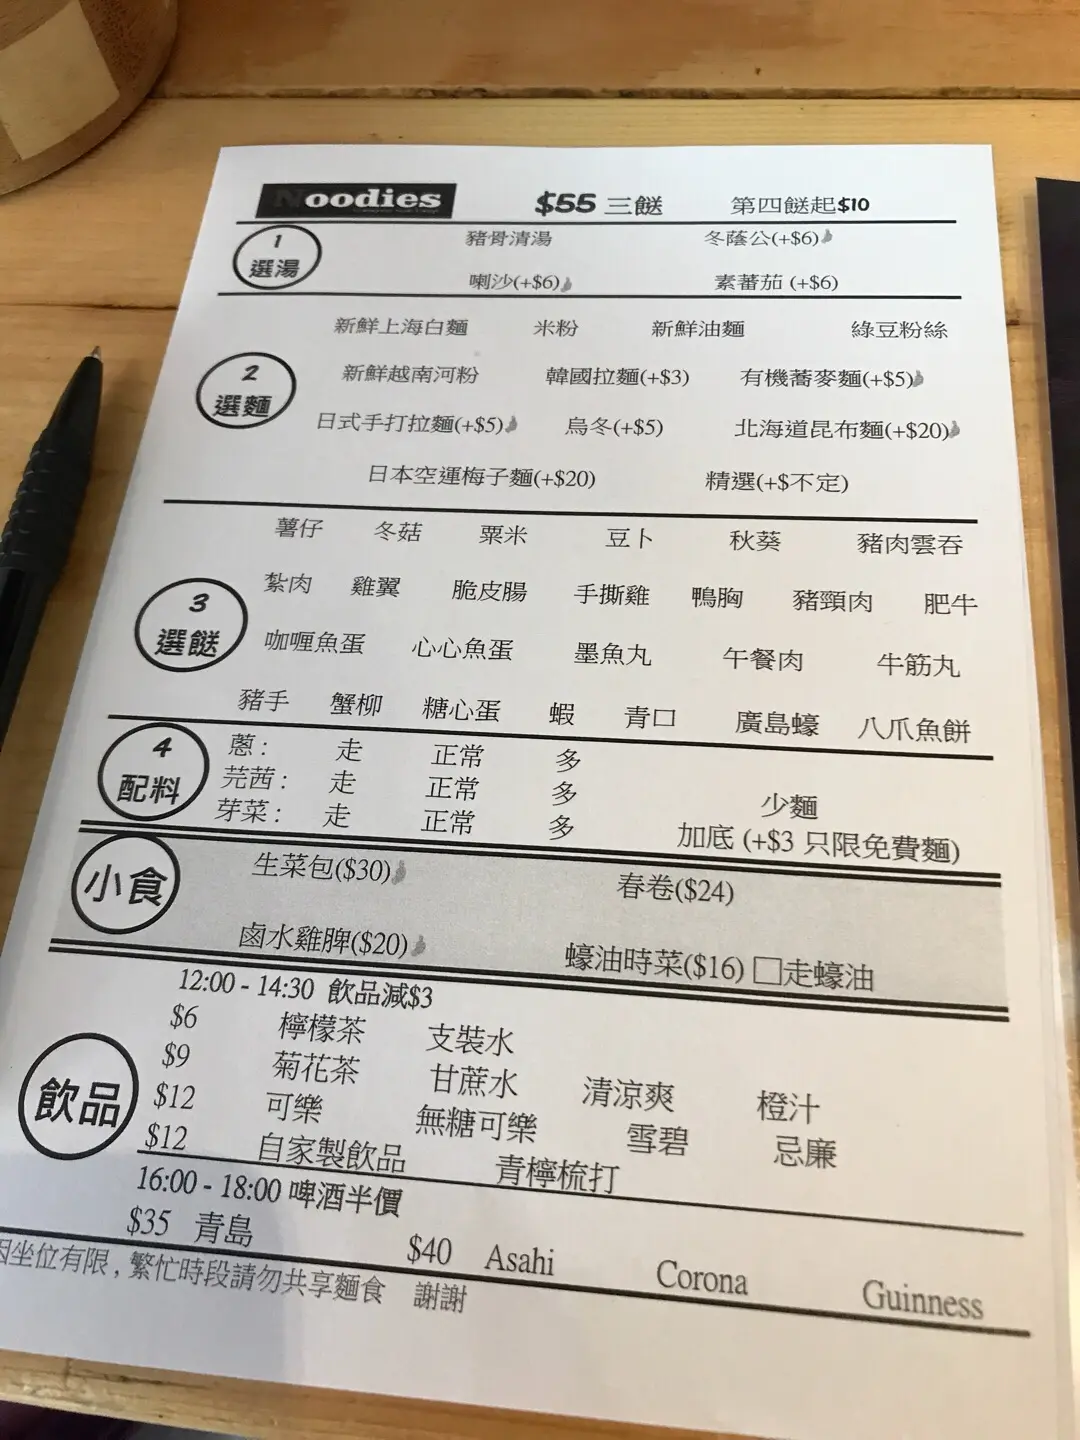 Noodies $55 三餸 第四餸起$10
1 選湯
豬骨清湯 冬蔭公(+$6)
喇沙(+$6) 素蕃茄 (+$6)
2 選麵
新鮮上海白麵 米粉 新鮮油麵 綠豆粉絲
新鮮越南河粉 韓國拉麵(+$3) 有機蕎麥麵(+$5)
日式手打拉麵(+$5) 烏冬(+$5) 北海道昆布麵(+$20)
日本空運梅子麵(+$20) 精選(+$不定)
3 選餸
薯仔 冬菇 粟米 豆卜 秋葵 豬肉雲吞
紮肉 雞翼 脆皮腸 手撕雞 鴨胸 豬頸肉 肥牛
咖喱魚蛋 心心魚蛋 墨魚丸 午餐肉 牛筋丸
豬手 蟹柳 糖心蛋 蝦 青口 廣島蠔 八爪魚餅
4 配料
蔥: 走 正常 多
芫茜: 走 正常 多 少麵
芽菜: 走 正常 多 加底 (+$3 只限免費麵)
小食
生菜包($30) 春卷($24)
鹵水雞脾($20) 蠔油時菜($16) □走蠔油
飲品
12:00 - 14:30 飲品減$3
$6 檸檬茶 支裝水
$9 菊花茶 甘蔗水 清涼爽 橙汁
$12 可樂 無糖可樂 雪碧 忌廉
$12 自家製飲品 青檸梳打
16:00 - 18:00 啤酒半價
$35 青島 $40 Asahi Corona Guinness
因坐位有限, 繁忙時段請勿共享麵食 謝謝